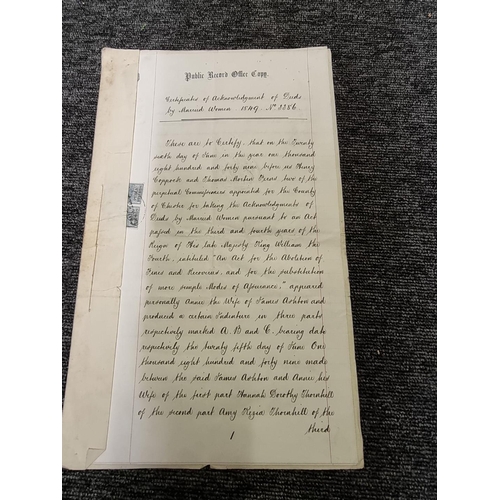 Public Record Office Copy.
Certificates of Acknowledgment of Deeds
by Married Women 1849 No 3386
These are to Certify, that on the Twenty
sixth day of June in the year one thousand
eight hundred and forty nine before us Henry
Coppock and Thomas Morten two of the
perpetual Commissioners appointed for the County
of Chester for taking the Acknowledgments of
Deeds by Married Women pursuant to an Act
passed in the third and fourth years of the
Reign of His late Majesty King William the
Fourth, intituled "An Act for the Abolition of
Fines and Recoveries, and for the substitution
of more simple Modes of Assurance," appeared
personally Annie the Wife of James Ashton and
produced a certain Indenture in three parts
respectively marked A B and C. bearing date
respectively the twenty fifth day of June One
thousand eight hundred and forty nine made
between the said James Ashton and Annie his
Wife of the first part Hannah Dorothy Thornhill
of the second part Amy Kezia Thornhill of the
third
1